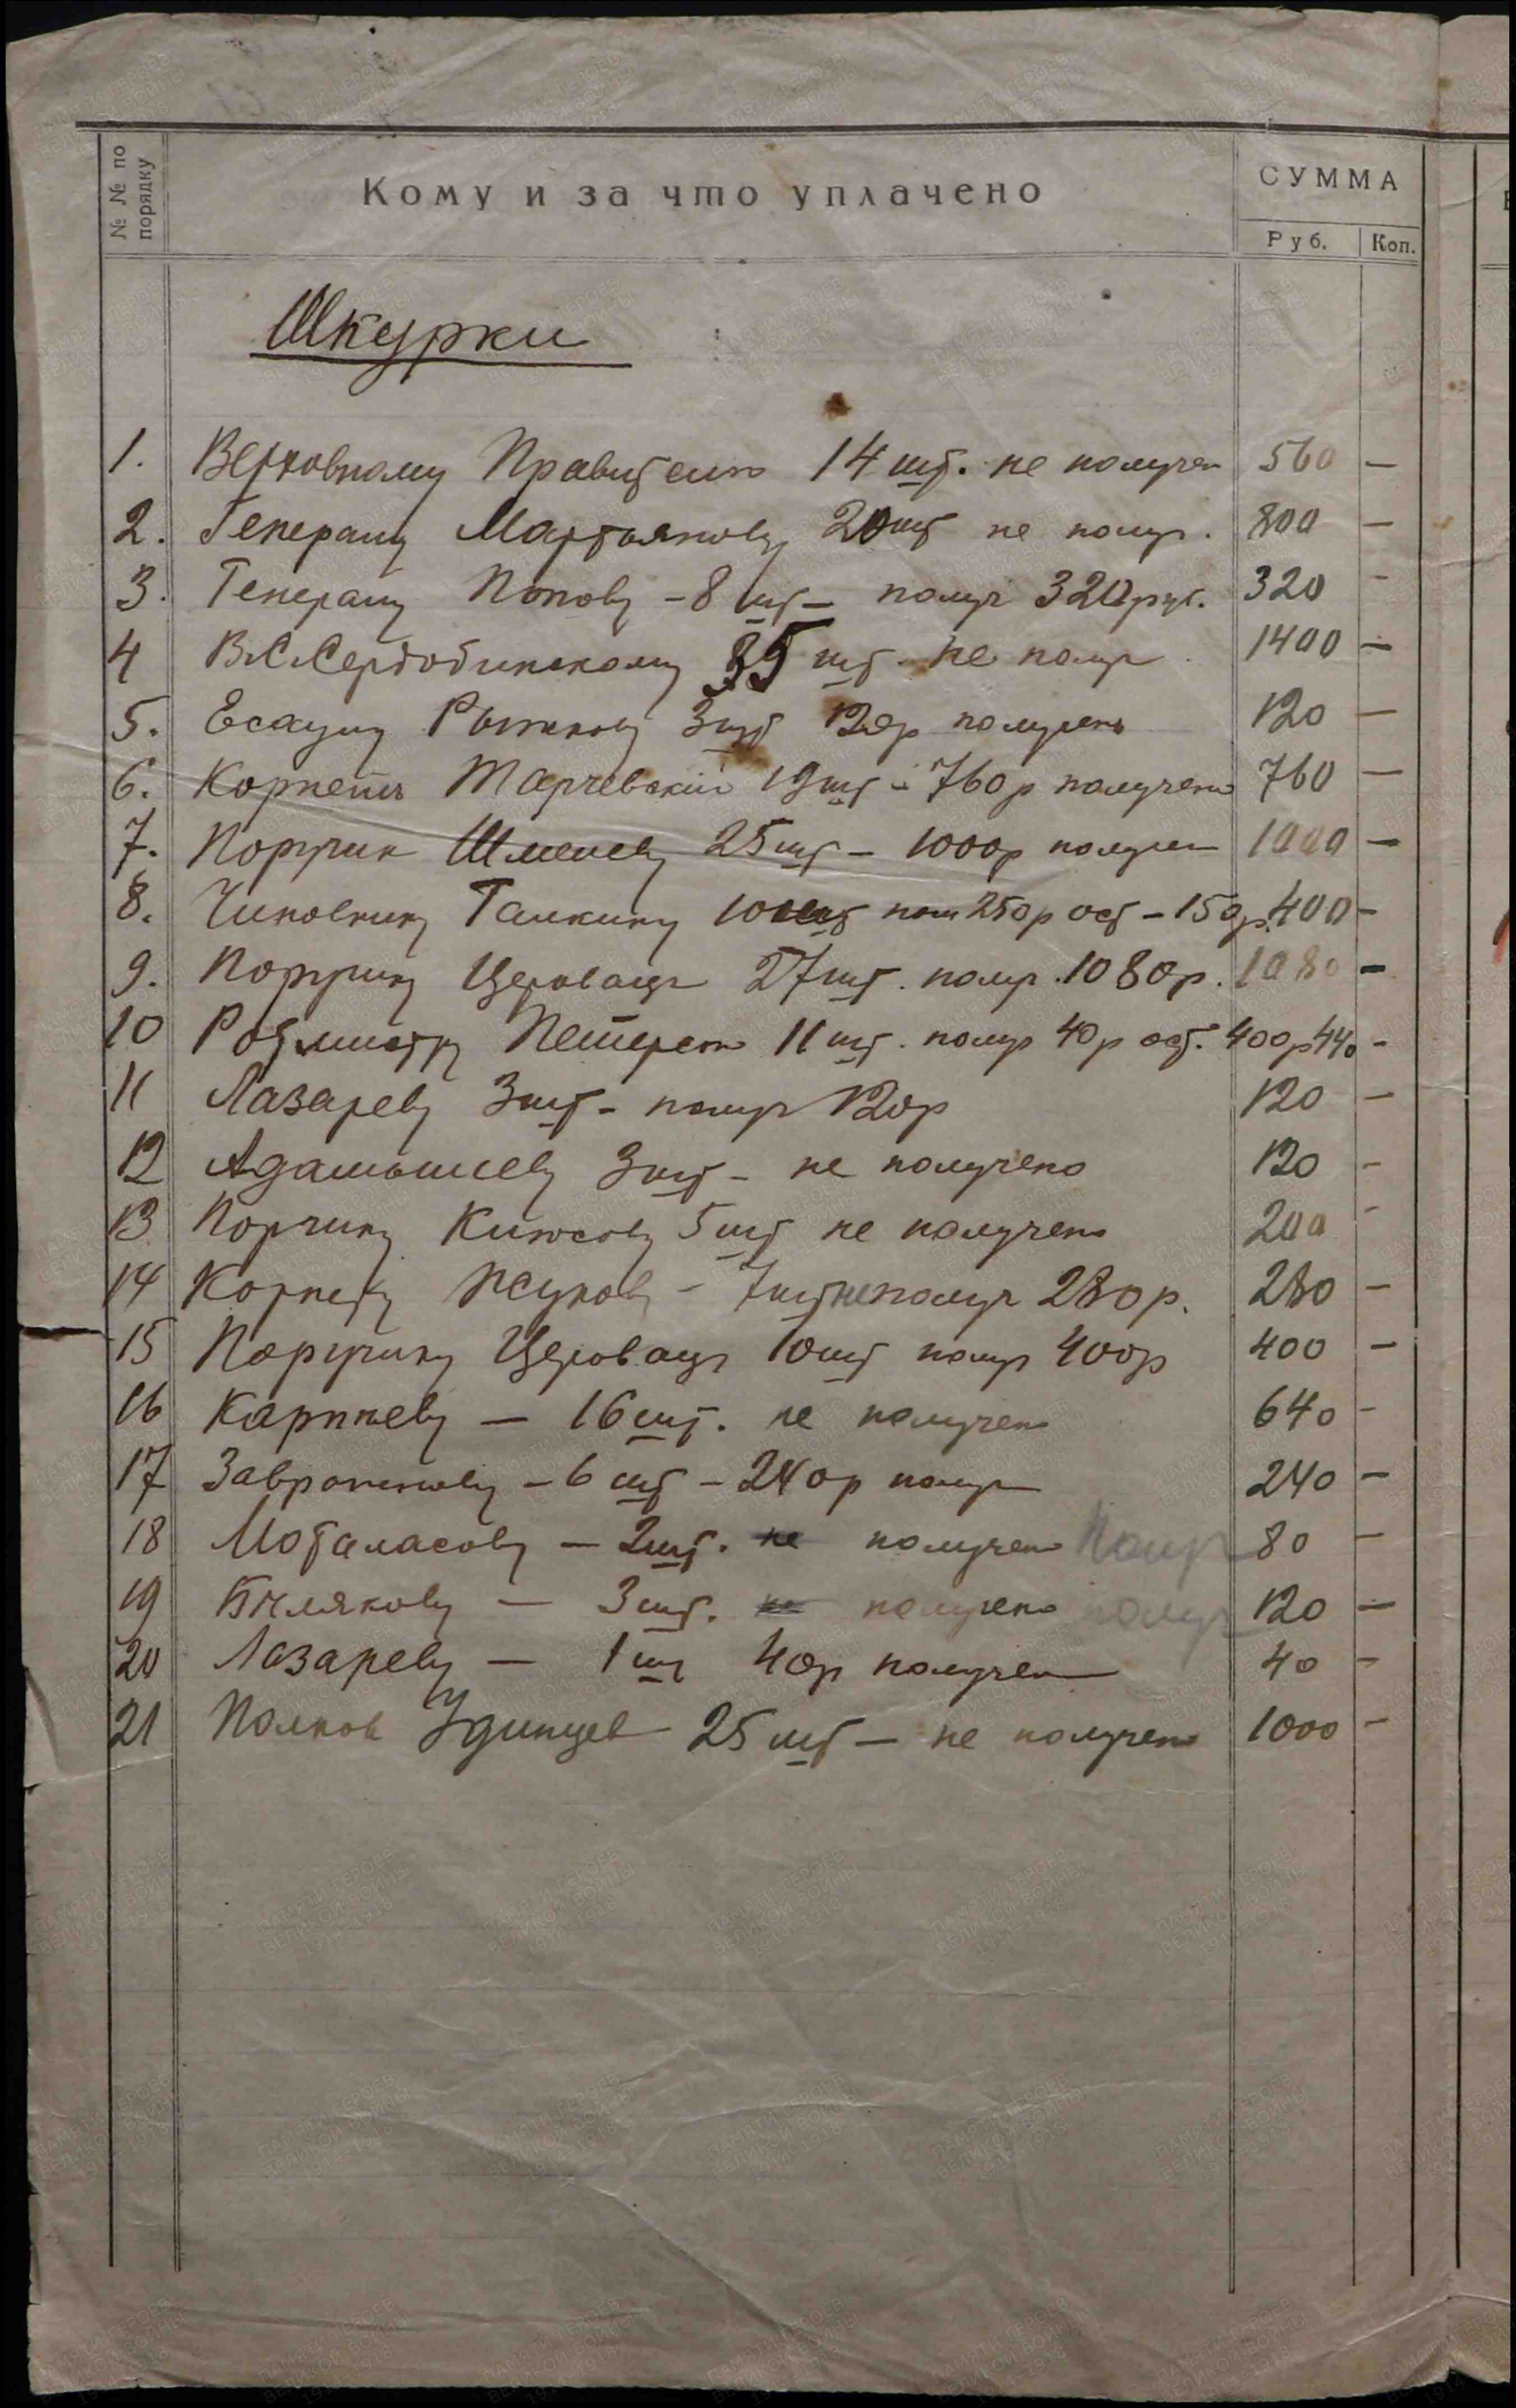 № № по порядку
Кому и за что уплачено
СУММА
Руб. Коп.
Шкурки
1. Верховному Правителю 14 шт. не получен 560 —
2. Генералу Мартьянову 20 шт не получ. 800 —
3. Генералу Попову - 8 шт - получ 320 руб. 320 -
4 В.С. Сердобинскому 35 шт. не получ 1400 —
5. Есаулу Рыжкову 3 шт 120р получено 120 —
6. Корнетъ Тарчевскій 19 шт - 760 р получено 760 —
7. Поручик 25 шт - 1000р получен 1000 —
8. Чиновнику Галкину 10 шт пол 250 р ост - 150р. 400 -
9. Поручику 27 шт. получ. 1080р. 1080 -
10 Ротмистру Петерсон 11 шт. получ 40 р ост. 400р 440 -
11 Лазареву 3 шт - получ 120р 120 —
12 3 шт - не получено 120 -
13 Поручику 5 шт не получено 200 -
14 Корнету Жукову - 7 шт не получ 280 р. 280 —
15 Поручику 10 шт получ 400р 400 —
16 Карпкеву — 16 шт. не получено 640 -
17 - 6 шт - 240р получ 240 —
18 — 2 шт. не получено Получ 80 —
19 Бѣлякову — 3 шт. не получено получ 120 —
20 Лазареву — 1 шт 40р получен 40 -
21 Полков Удинцев 25 шт — не получено 1000 —